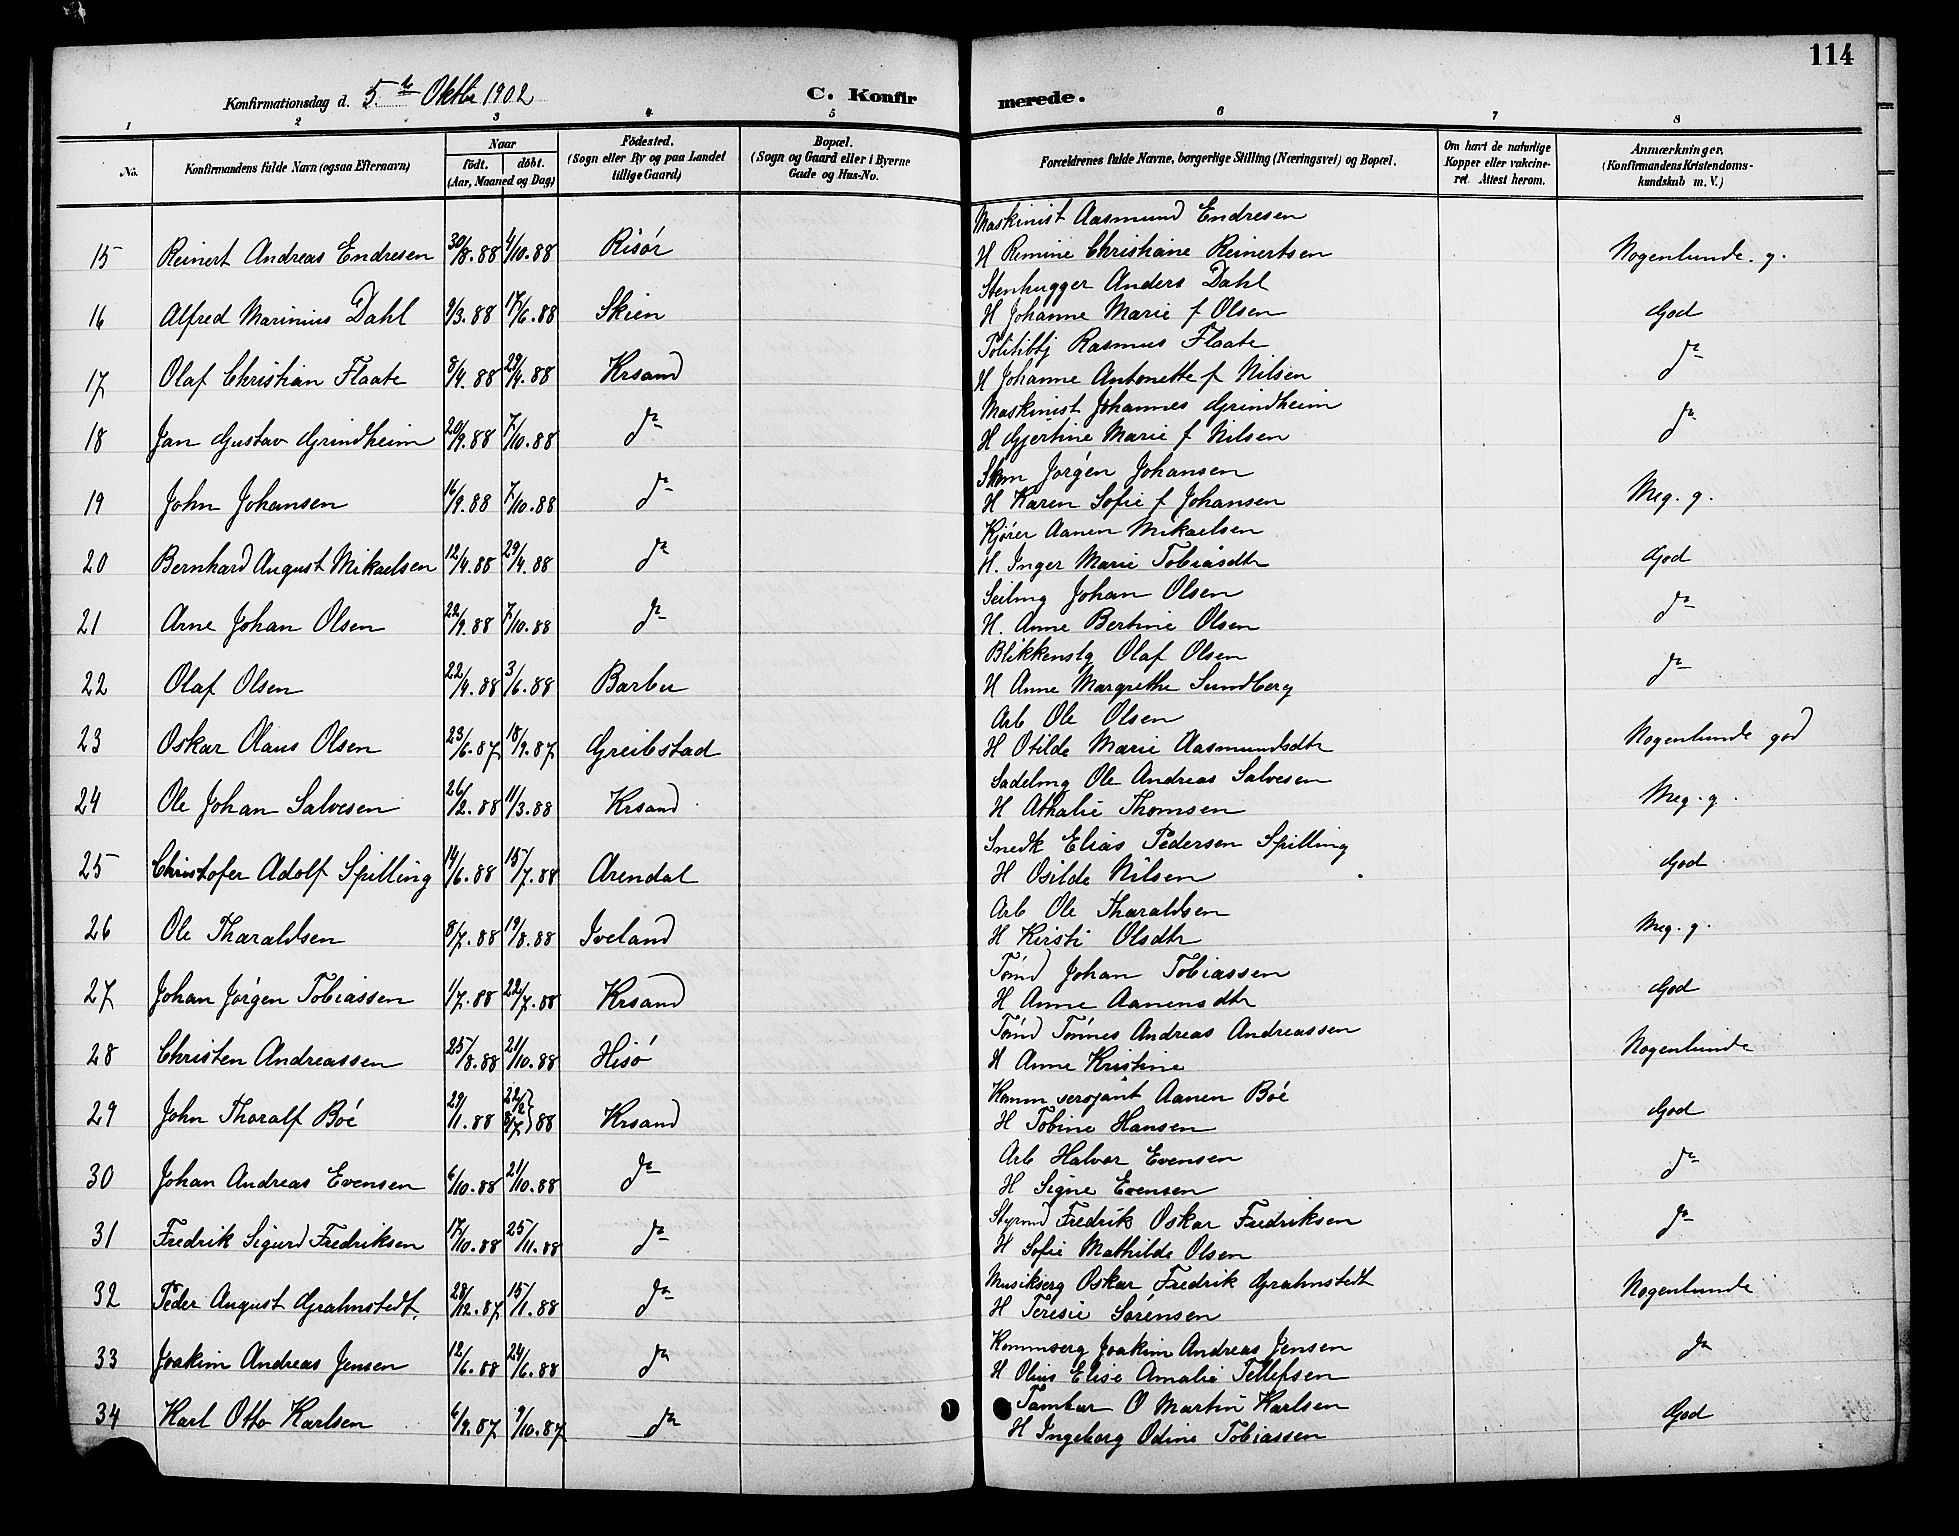 114
Konfirmationsdag d. 5te Oktbr 1902 C. Konfirmerede.
1 2 3 4 5 6 7 8
No. Konfirmandens fulde Navn (ogsaa Efternavn) Naar födt. döbt. (Aar, Maaned og Dag) Födested. (Sogn eller By og paa Landet tillige Gaard) Bopæl. (Sogn og Gaard eller i Byerne Gade og Hus-No. Forældrenes fulde Navne, borgerlige Stilling (Næringsvei) og Bopæl. Om havt de naturlige Kopper eller vakcineret. Attest herom. Anmærkninger. (Konfirmandens Kristendomskundskab m. V.)
Maskinist Aasmund Endresen
15 Reinert Andreas Endresen 30/8.88 4/10.88 Risör H Remine Christiane Reinertsen Nogenlunde. g.
Stenhugger Anders Dahl
16 Alfred Marinius Dahl 9/3.88 17/6.88 Skien H Johanne Marie f Olsen God
Politibtj Rasmus Flaate
17 Olaf Christian Flaate 8/4.88 29/4.88 Krsand H Johanne Antonette f Nilsen do
Maskinist Johannes Grindheim
18 Jan Gustav Grindheim 20/9.88 7/10.88 do H Gjertine Marie f Nilsen do
Skm Jörgen Johansen
19 John Johansen 16/9.88 7/10.88 do H Karen Sofie f Johansen Meg. g.
Kjörer Aanen Mikaelsen
20 Bernhard August Mikaelsen 12/4.88 29/4.88 do H. Inger Marie Tobiasdtr God
Seilmg Johan Olsen
21 Arne Johan Olsen 22/9.88 7/10.88 do H. Anne Bertine Olsen do
Blikkenslg Olaf Olsen
22 Olaf Olsen 22/4.88 3/6.88 Barbu H Anne Margrethe Sundberg do
Arb Ole Olsen
23 Oskar Olaus Olsen 23/6.87 18/9.87 Greibstad H Otilde Marie Aasmundsdtr Nogenlunde god
Sadelmg Ole Andreas Salvesen
24 Ole Johan Salvesen 26/2.88 11/3.88 Krsand H Athalie Thomsen Meg. g.
Snedk Elias Pedersen Spilling
25 Christofer Adolf Spilling 14/6.88 15/7.88 Arendal H Osilde Nilsen God
Arb Ole Tharaldsen
26 Ole Tharaldsen 8/7.88 19/8.88 Iveland H Kirsti Olsdtr Meg. g.
Tömd Johan Tobiassen
27 Johan Jörgen Tobiassen 1/7.88 22/7.88 Krsand H Anne Aanensdtr God
Tömd Tönnes Andreas Andreassen
28 Christen Andreassen 25/8.88 21/10.88 Hisö H Anne Kristine Nogenlunde
Komm serojant Aanen Böe
29 John Thoralf Böe 29/1.88 22/2 8/7} 88 Krsand H Tobine Hansen God
Arb Halvor Evensen
30 Johan Andreas Evensen 6/10.88 21/10.88 do H Signe Evensen do
Styrmd Fredrik Oskar Fredriksen
31 Fredrik Sigurd Fredriksen 17/10.88 25/11.88 do H Sofie Mathilde Olsen do
Musikserg Oskar Fredrik Grahnstedt
32 Peder August Grahnstedt. 28/12.87 15/1.88 do H Teresie Sörensen Nogenlunde
Kommserg Joakim Andreas Jensen
33 Joakim Andreas Jensen 12/6.88 24/6.88 do H Olius Elise Amalie Tellefsen do
Tambur O Martin Karlsen
34 Karl Otto Karlsen 6/9.87 9/10.87 do H Ingeborg Odine Tobiassen God